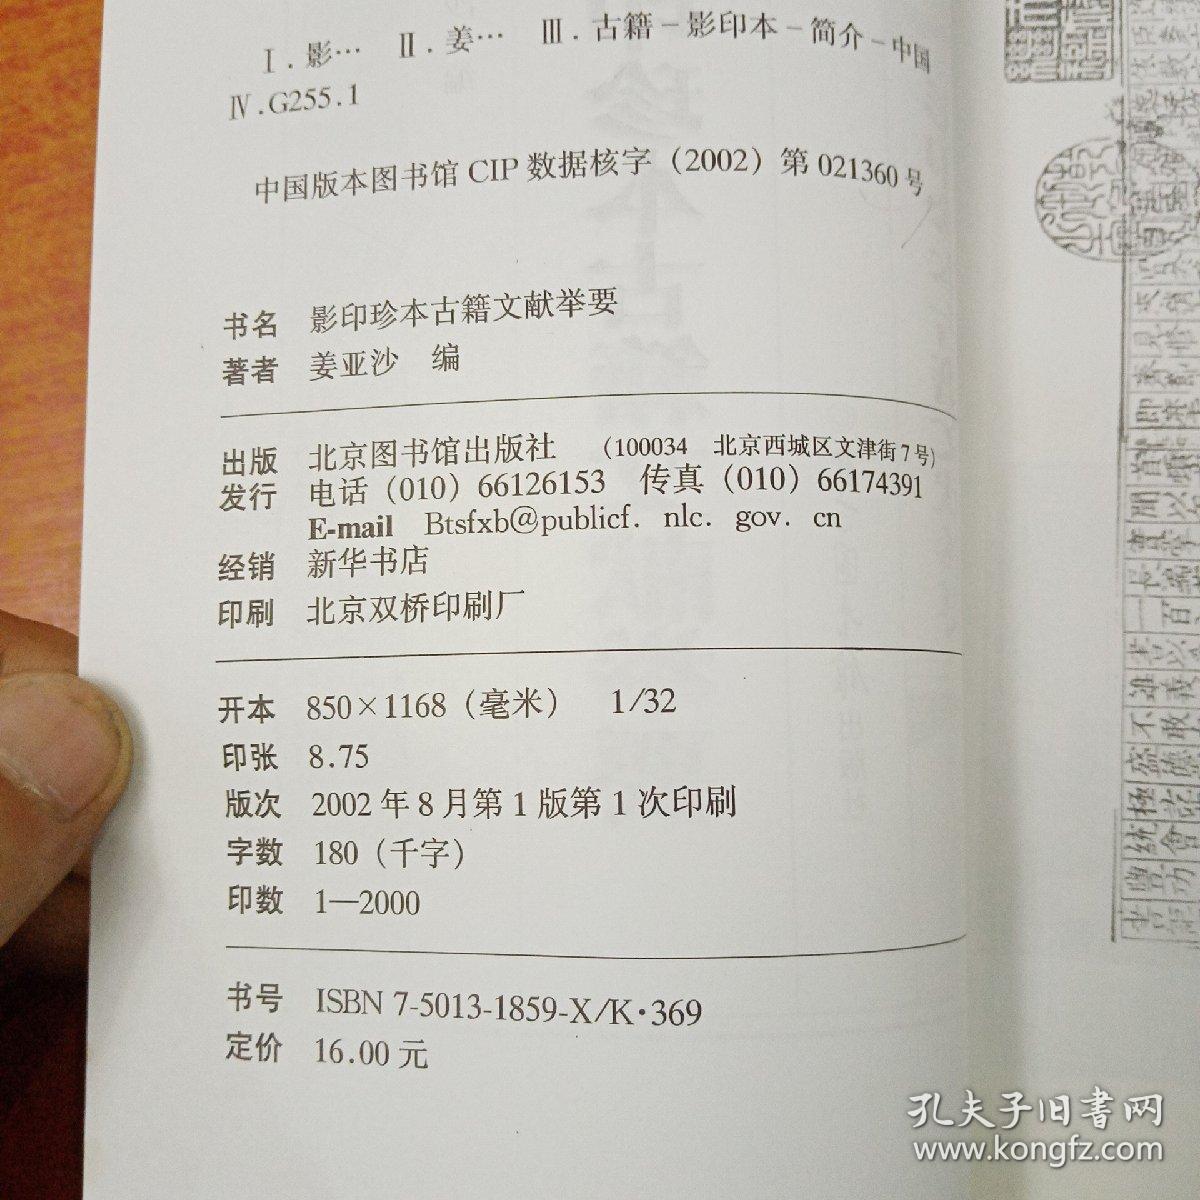 Ⅰ.影… Ⅱ.姜… Ⅲ.古籍-影印本-简介-中国
Ⅳ.G255.1
中国版本图书馆CIP数据核字(2002)第021360号
书名 影印珍本古籍文献举要
著者 姜亚沙 编
出版 北京图书馆出版社 (100034 北京西城区文津街7号)
发行 电话(010)66126153 传真(010)66174391
E-mail Btsfxb@publicf. nlc. gov. cn
经销 新华书店
印刷 北京双桥印刷厂
开本 850×1168(毫米) 1/32
印张 8.75
版次 2002年8月第1版第1次印刷
字数 180(千字)
印数 1—2000
书号 ISBN 7-5013-1859-X/K·369
定价 16.00元
孔夫子旧书网
www.kongfz.com